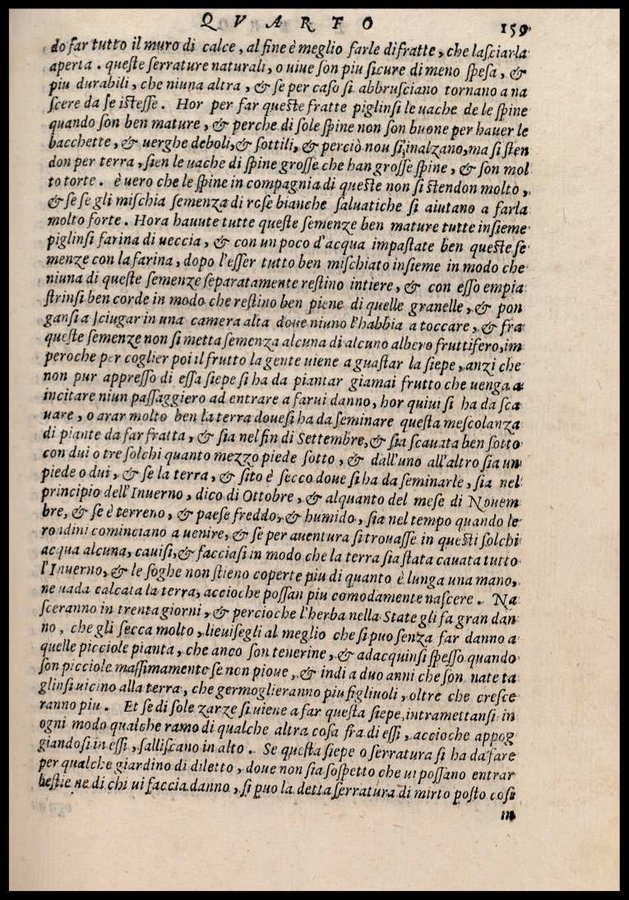 QVARTO 159
do far tutto il muro di calce, al fine è meglio farle di fratte, che lasciarla
aperta. queste serrature naturali, o uiue son piu sicure di meno spesa, &
piu durabili, che niuna altra, & se per caso si abbrusciano tornano a na
scere da se istesse. Hor per far queste fratte piglinsi le uache de le spine
quando son ben mature, & perche di sole spine non son buone per hauer le
bacchette, & uerghe deboli, & sottili, & perciò nou si inalzano, ma si sten
don per terra, sien le uache di spine grosse che han grosse spine, & son mol
to torte. è uero che le spine in compagnia di queste non si stendon molto,
& se se gli mischia semenza di rose bianche saluatiche si aiutano a farla
molto forte. Hora hauute tutte queste semenze ben mature tutte insieme
piglinsi farina di ueccia, & con un poco d'acqua impastate ben queste se
menze con la farina, dopo l'esser tutto ben mischiato insieme in modo che
niuna di queste semenze separatamente restino intiere, & con esso empia
strinsi ben corde in modo che restino ben piene di quelle granelle, & pon
gansi a sciugar in una camera alta doue niuno l'habbia a toccare, & fra
queste semenze non si metta semenza alcuna di alcuno albero fruttifero, im
peroche per coglier poi il frutto la gente uiene a guastar la siepe, anzi che
non pur appresso di essa siepe si ha da piantar giamai frutto che uenga a
incitare niun passaggiero ad entrare a farui danno, hor quiui si ha da sca
uare, o arar molto ben la terra doue si ha da seminare questa mescolanza
di piante da far fratta, & sia nel fin di Settembre, & sia scauata ben sotto
con dui o tre solchi quanto mezzo piede sotto, & dall'uno all'altro sia un
piede o dui, & se la terra, & sito è secco doue si ha da seminarle, sia nel
principio dell'Inuerno, dico di Ottobre, & alquanto del mese di Nouem
bre, & se è terreno, & paese freddo, & humido, sia nel tempo quando le
rondini cominciano a uenire, & se per auentura si trouasse in questi solchi
acqua alcuna, cauisi, & facciasi in modo che la terra sia stata cauata tutto
l'Inuerno, & le soghe non stieno coperte piu di quanto è lunga una mano,
ne uada calcata la terra, accioche possan piu comodamente nascere. Na
sceranno in trenta giorni, & percioche l'herba nella State gli fa gran dan
no, che gli secca molto, lieuisegli al meglio che si puo senza far danno a
quelle picciole pianta, che anco son tenerine, & adacquinsi spesso quando
son picciole massimamente se non pioue, & indi a duo anni che son nate ta
glinsi uicino alla terra, che germoglieranno piu figliuoli, oltre che cresce
ranno piu. Et se di sole zarze si uiene a far questa siepe, intramettansi in
ogni modo qualche ramo di qualche altra cosa fra di essi, accioche appog
giandosi in essi, salliscano in alto. Se questa siepe o serratura si ha da fare
per qualche giardino di diletto, doue non sia sospetto che ui possano entrar
bestie ne di chi ui faccia danno, si puo la detta serratura di mirto posto cosi
in